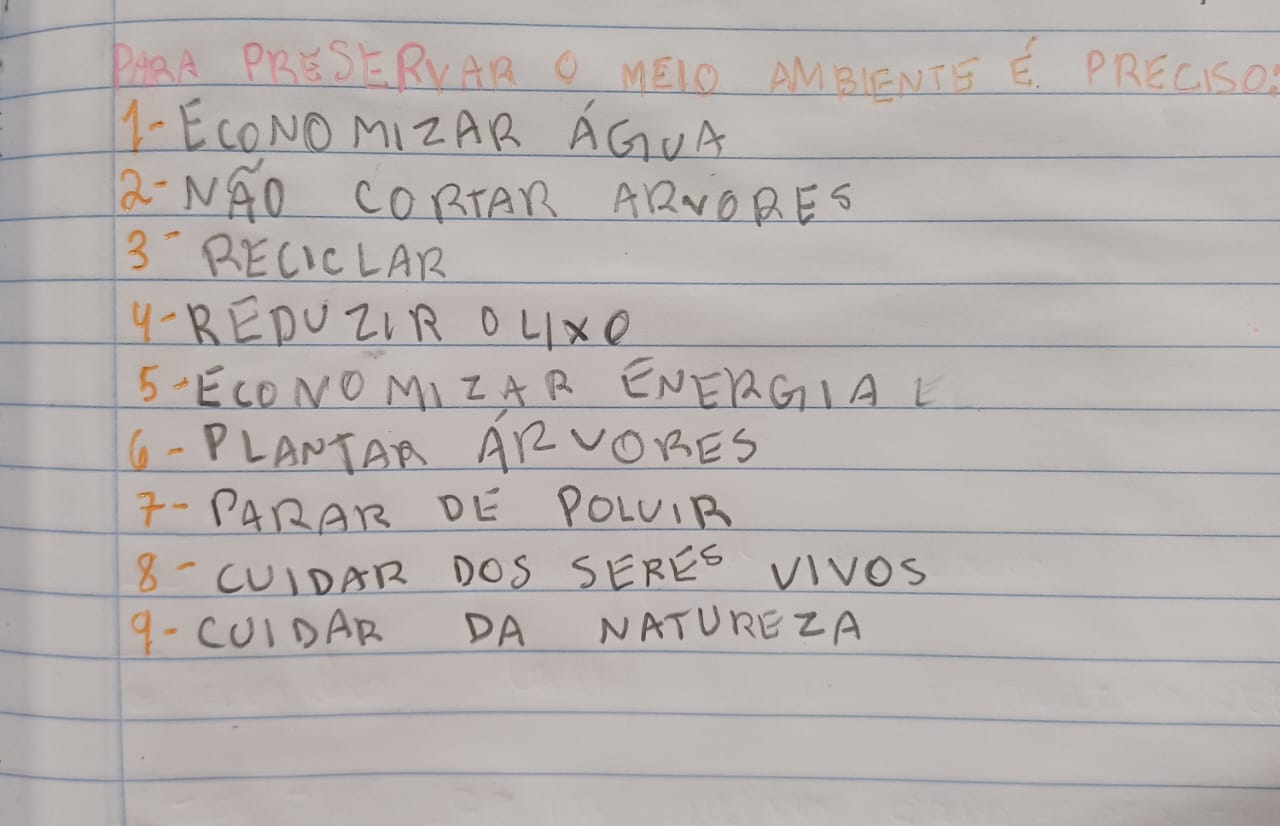 PARA PRESERVAR O MEIO AMBIENTE É PRECISO:
1- ECONOMIZAR ÁGUA
2- NÃO CORTAR ARVORES
3- RECICLAR
4- REDUZIR O LIXO
5- ECONOMIZAR ENERGIA E
6- PLANTAR ÁRVORES
7- PARAR DE POLUIR
8- CUIDAR DOS SERES VIVOS
9- CUIDAR DA NATUREZA